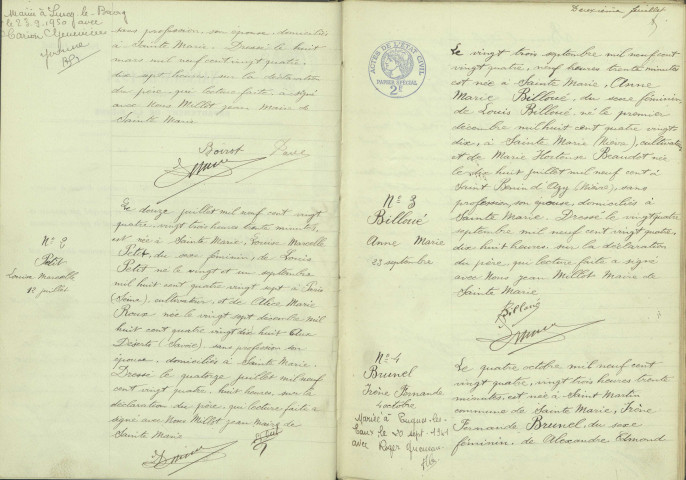 Marié à Lucq-de-Béarn
le 23.2.1950 avec
sans profession, son épouse, domiciliés
à Sainte Marie. Dressé le huit
mars mil neuf cent vingt quatre,
dix sept heures, sur la déclaration
du père, qui lecture faite, a signé
avec Nous Millot Jean Maire de
Sainte Marie
Boirot
Nº 2
Petit
Louise Marcelle
12 juillet
Le douze juillet mil neuf cent vingt
quatre, vingt trois heures trente minutes,
est née à Sainte Marie, Louise Marcelle
Petit, du sexe féminin, de Louis
Petit né le vingt et un septembre
mil huit cent quatre vingt sept à Paris
(Seine), cultivateur, et de Alice Marie
Roux née le vingt sept décembre mil
huit cent quatre vingt dix huit aux
Déserts (Savoie) sans profession son
épouse, domiciliés à Sainte Marie.
Dressé le quatorze juillet mil neuf
cent vingt quatre, huit heures, sur la
déclaration du père, qui lecture faite a
signé avec Nous Millot Jean maire de
Sainte Marie
Petit
Deuxième feuillet
ACTES DE L'ÉTAT CIVIL
PAPIER SPÉCIAL
2F
Le vingt trois septembre mil neuf cent
vingt quatre, neuf heures trente minutes
est née à Sainte Marie, Anne
Marie Billoué, du sexe féminin,
de Louis Billoué né le premier
décembre mil huit cent quatre vingt
dix, à Sainte Marie (Nièvre), cultivateur
et de Marie Hortense Beaudot née
le dix huit juillet mil neuf cent à
Saint Benin d'Azy (Nièvre), sans
profession, son épouse, domiciliés à
Sainte Marie. Dressé le vingt quatre
septembre mil neuf cent vingt quatre,
dix huit heures, sur la déclaration
du père, qui lecture faite a signé
avec Nous Jean Millot Maire de
Sainte Marie
Nº 3
Billoué
Anne Marie
23 septembre
Billoué
Nº 4
Brunel
Irène Fernande
4 octobre
Mariée à
le 20 sept. 1941
avec Roger
Le quatre octobre mil neuf cent
vingt quatre, vingt trois heures trente
minutes, est née à Saint Martin
commune de Sainte Marie, Irène
Fernande Brunel, du sexe
féminin, de Alexandre Edmond